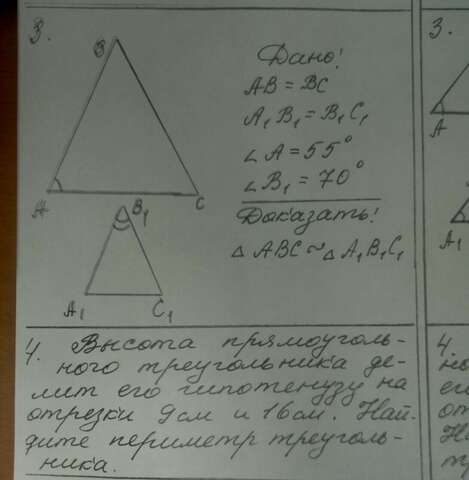 3.
B
A
C
B₁
A₁
C₁
Дано!
AB = BC
A₁B₁ = B₁C₁
∠A = 55°
∠B₁ = 70°
Доказать!
△ABC ~ △A₁B₁C₁
4. Высота прямоуголь-
ного треугольника де-
лит его гипотенузу на
отрезки 9см и 16см. Най-
дите периметр треуголь-
ника.
3.
A
A₁
4.
но
его
от
На
тр